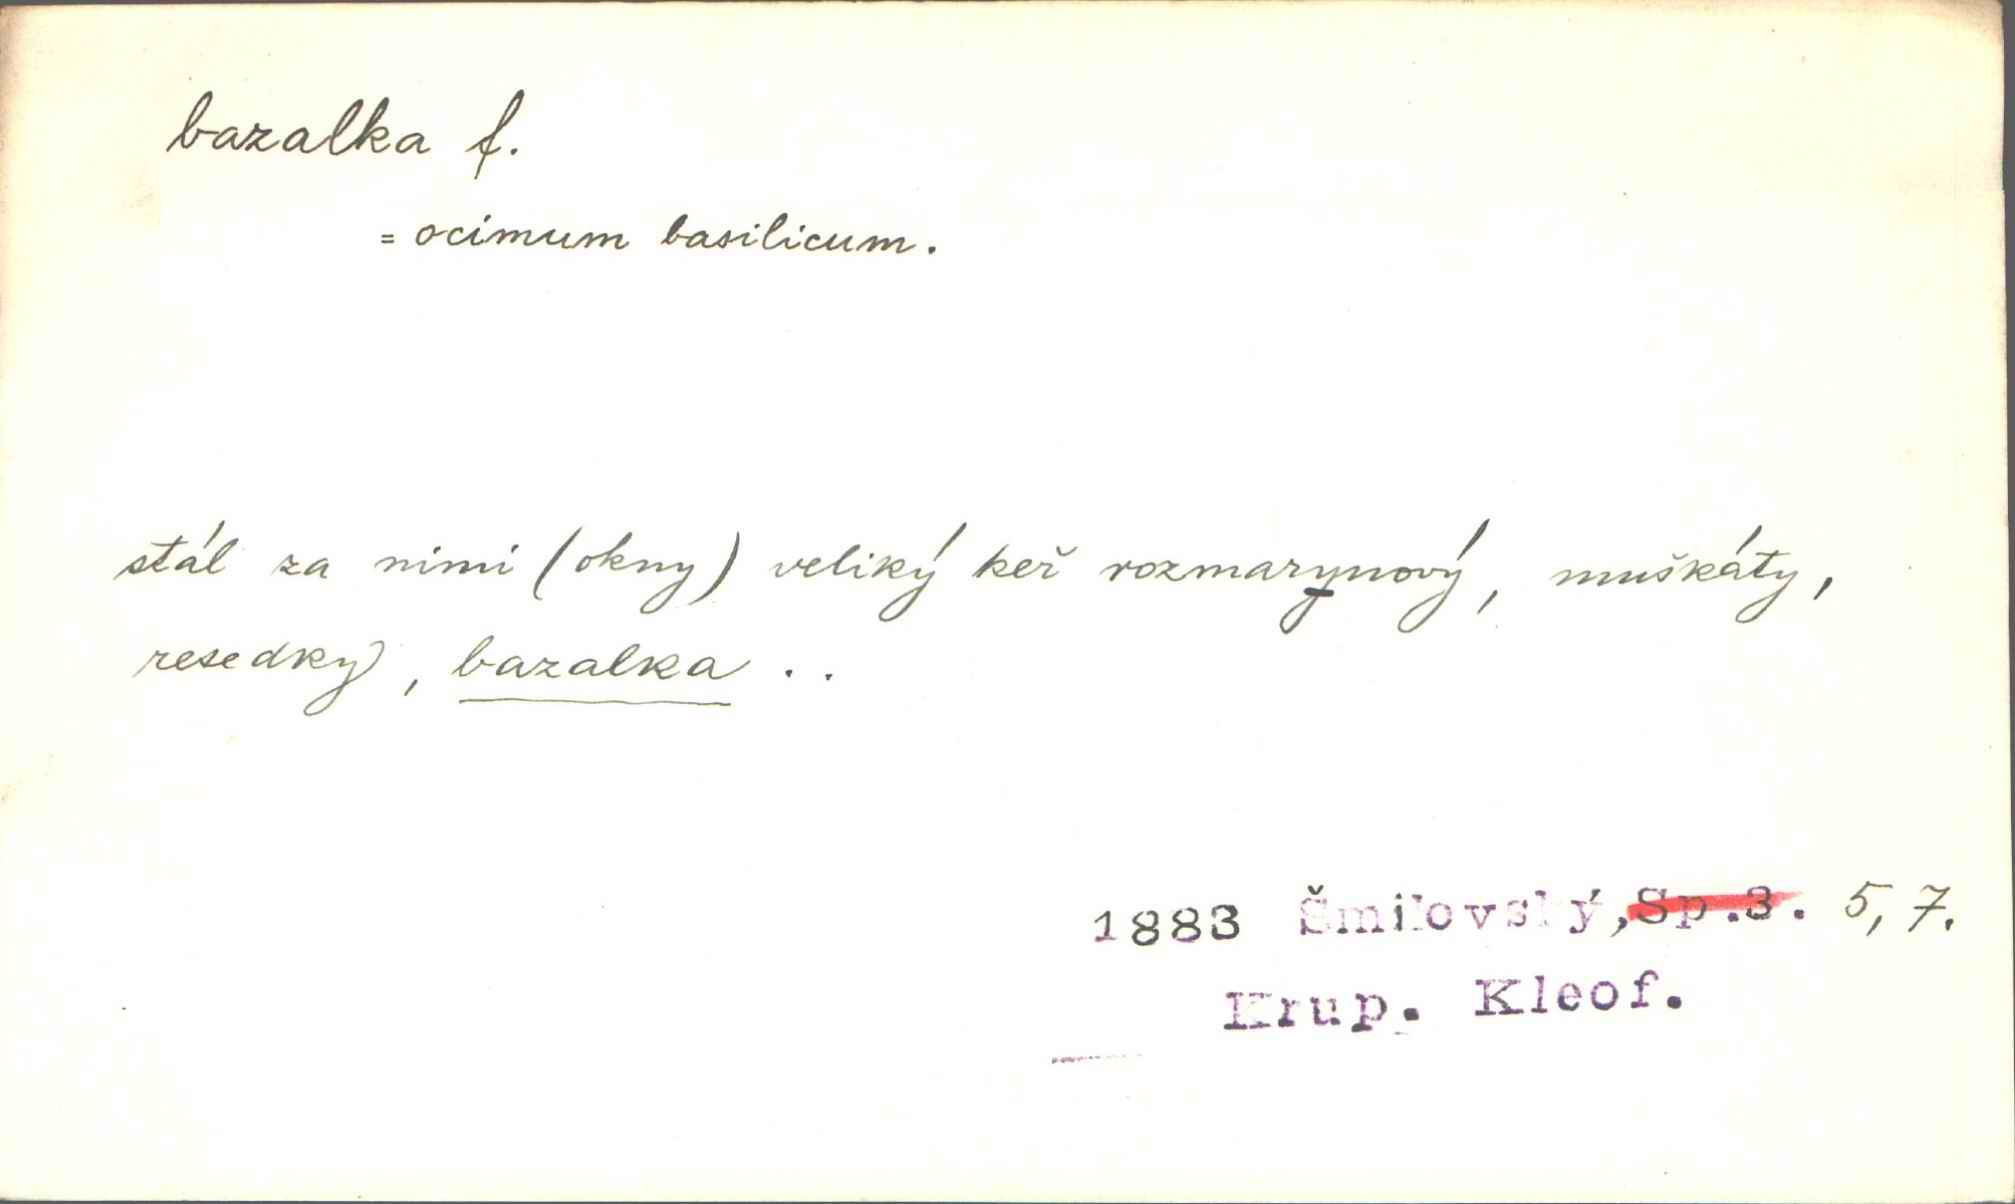 bazalka f.
= ocimum basilicum.
stál za nimi (okny) veliký keř rozmarynový, muškáty,
resedky, bazalka ..
1883 Šmilovský, Sp.3. 5, 7.
Krup. Kleof.